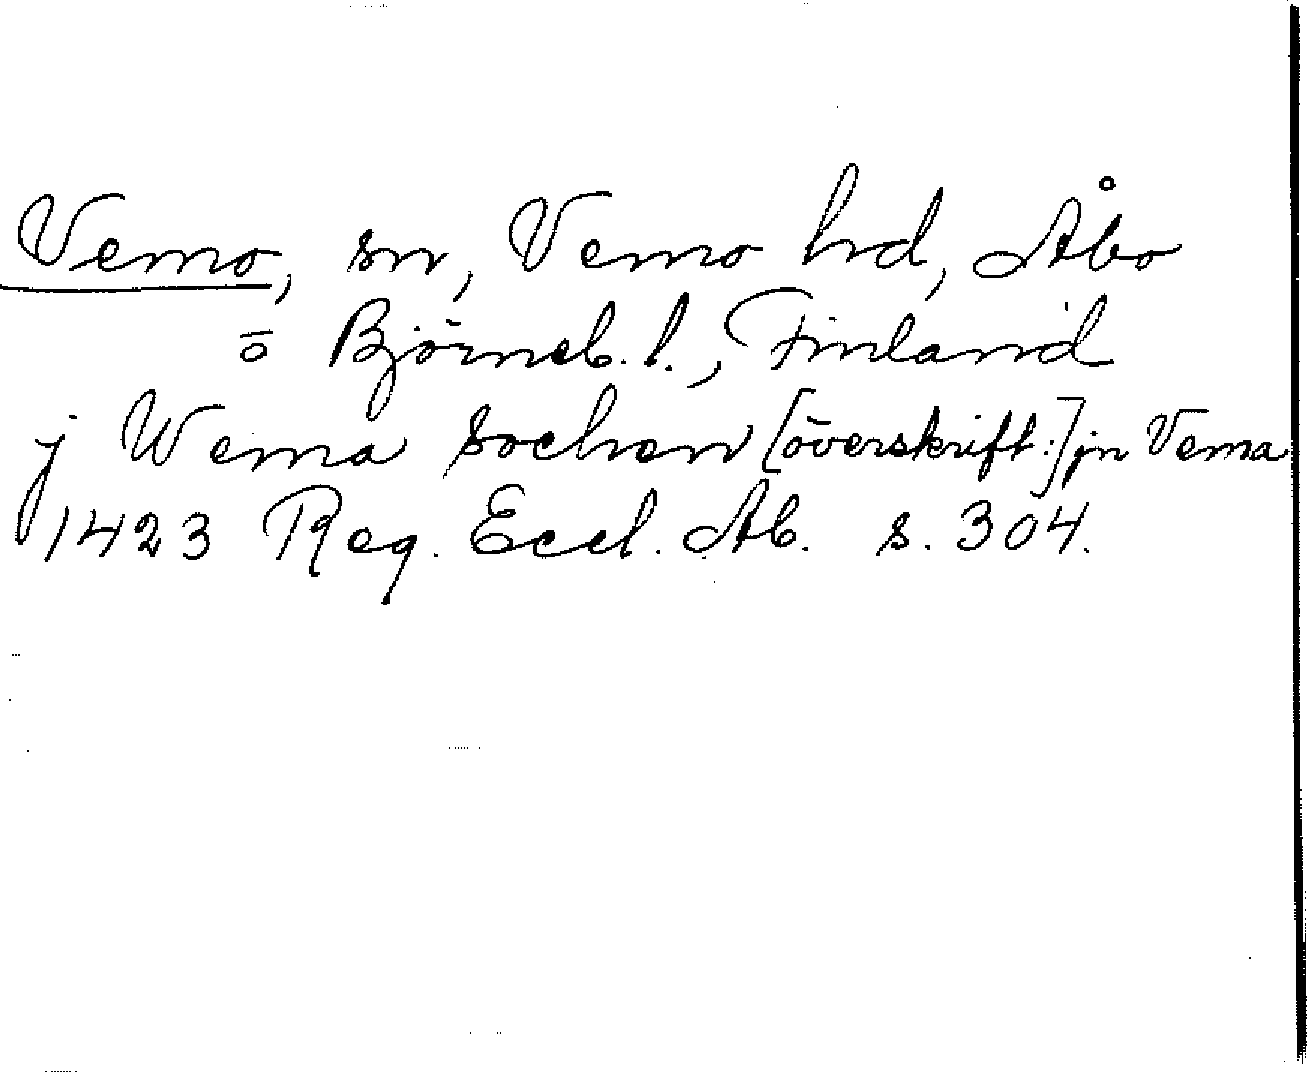 Vemo, sn, Vemo hd, Åbo
o Björneb. l., Finland
j Wema sochen [överskrift:] jn Vema
1423 Reg. Eccl. Ab. s. 304.